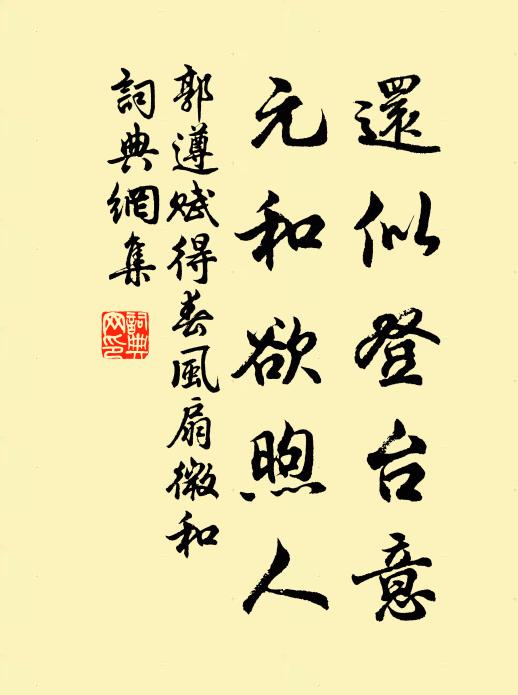 還似登台意
元和欲煦人
郭遵賦得春風扇微和
詞典網集
詞典
网印